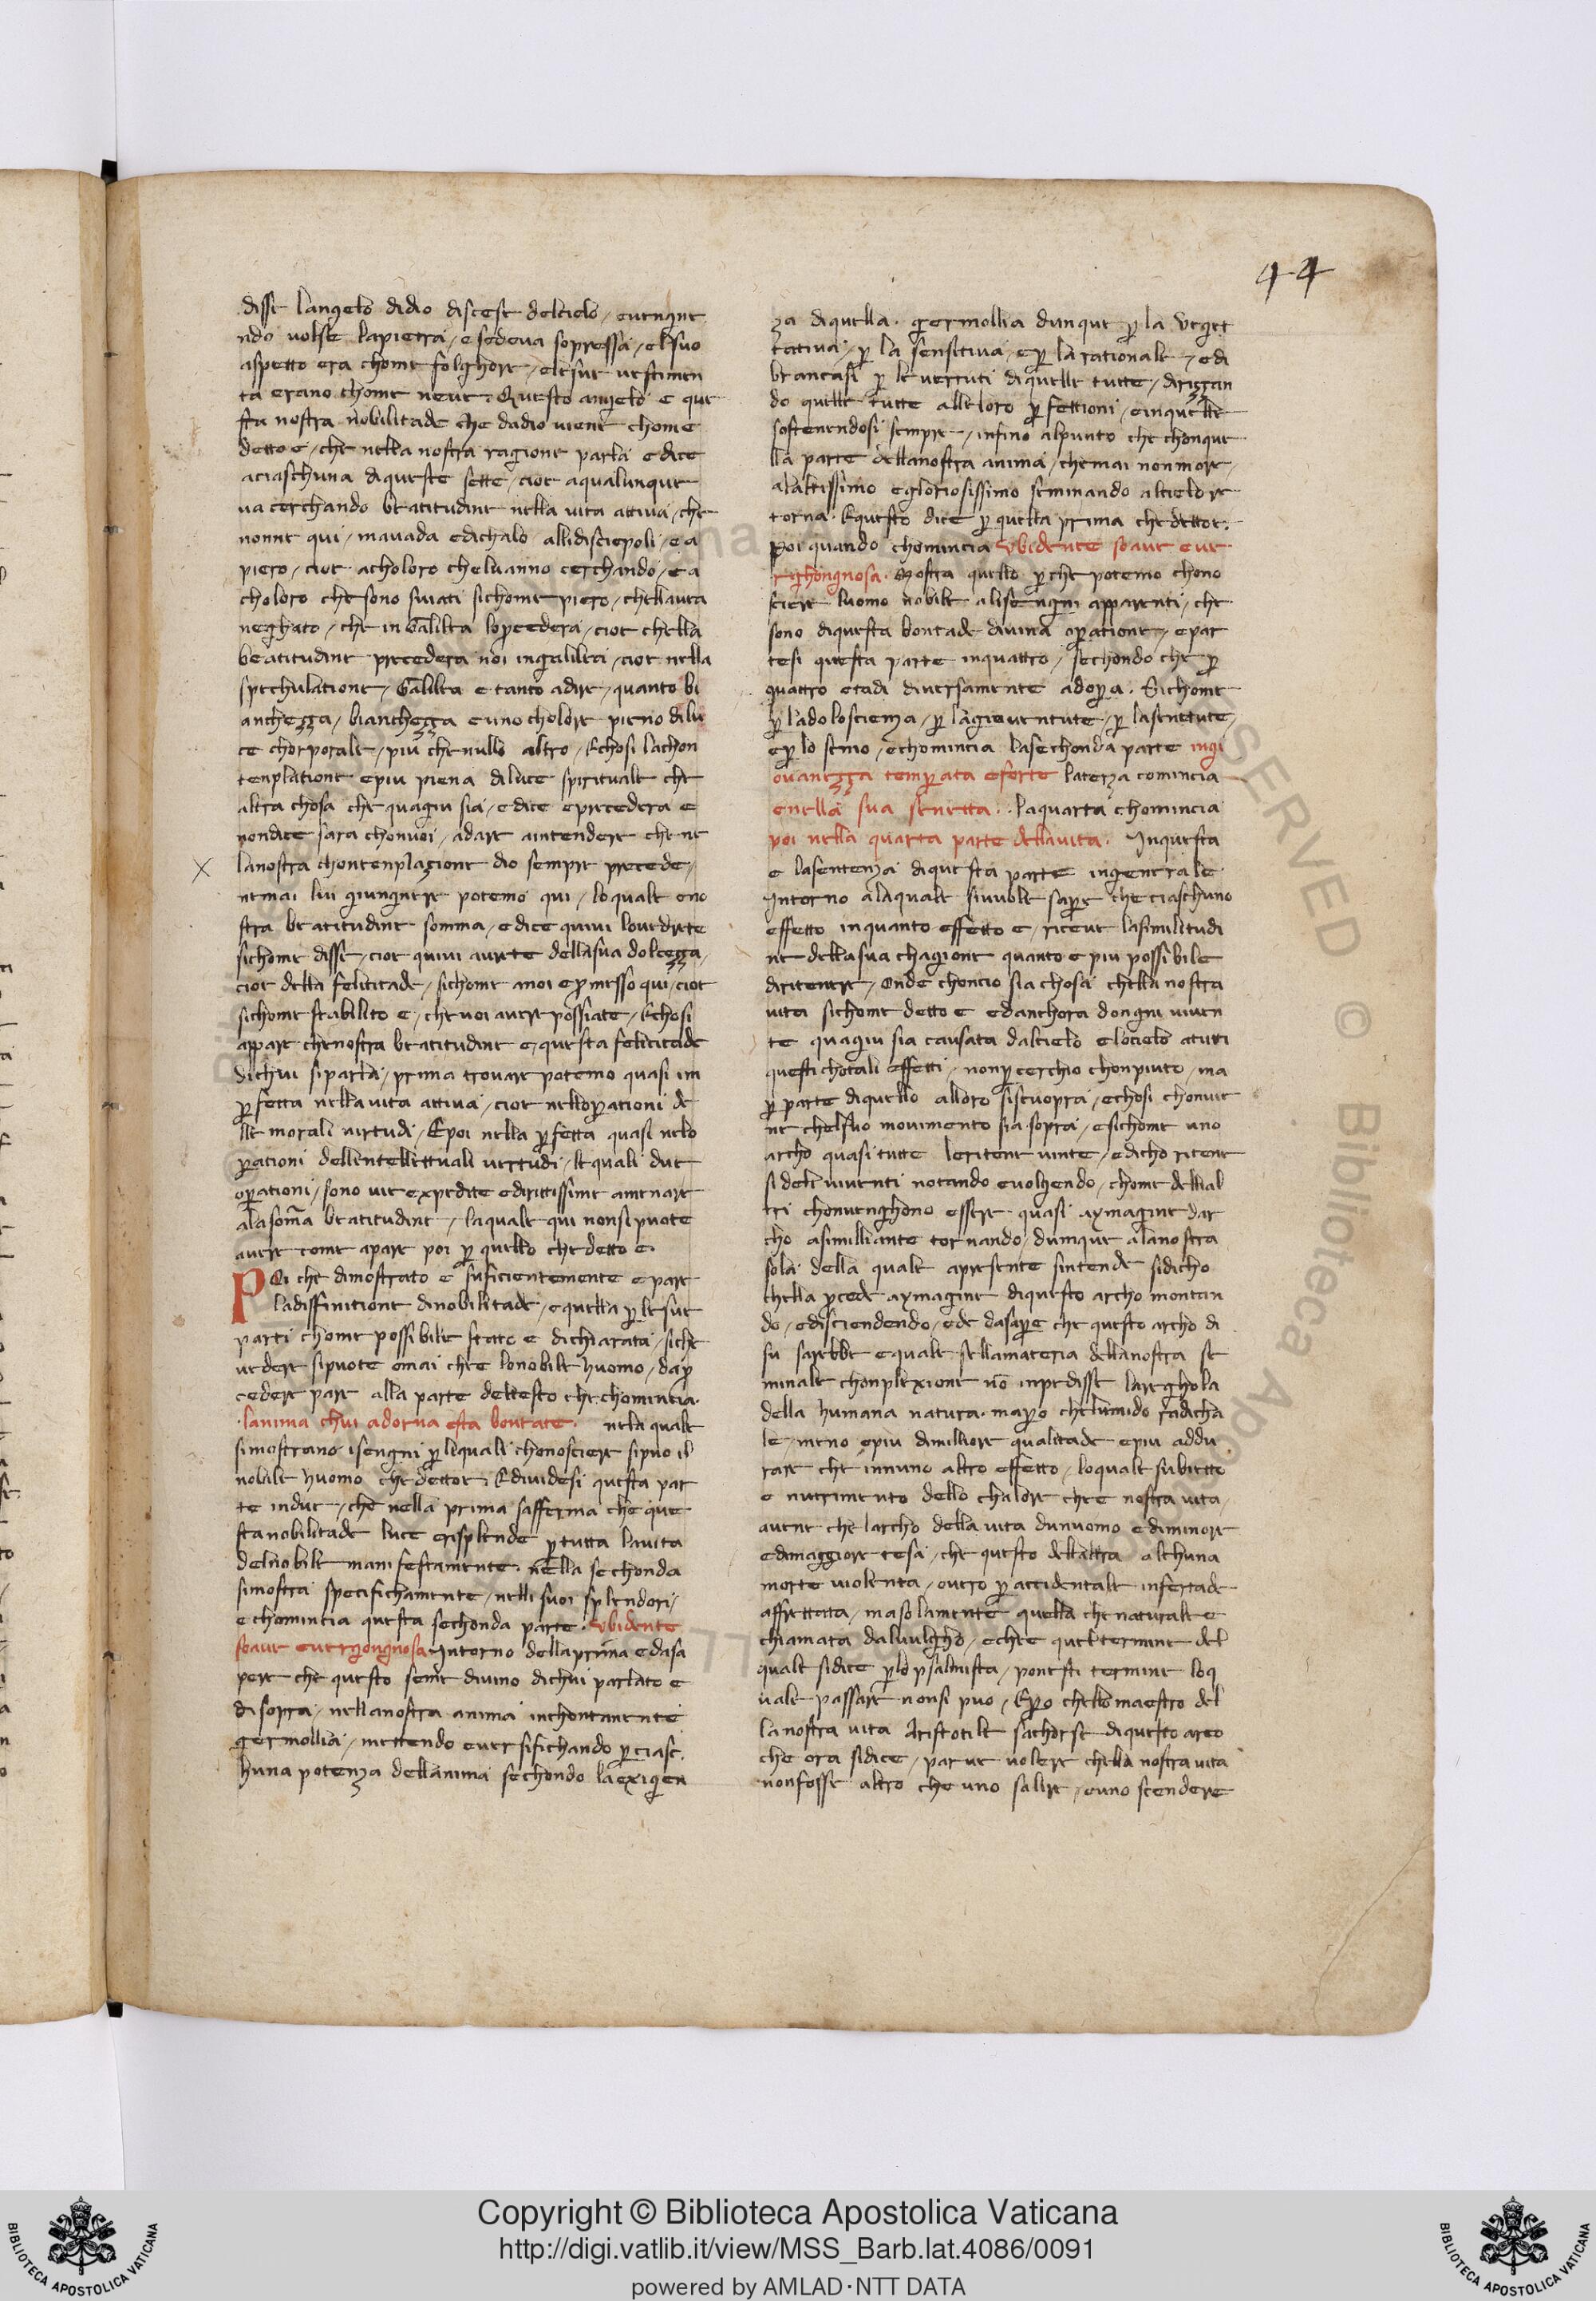 44
dissi langelo didio discese delcielo / euengne
ndo uolse lapietra / esedeua sopressa / elsuo
aspetto era chome folghore / elesue uestimen
ta erano chome neue. Questo angielo e que
sta nostra nobilitade che dadio viene chome
detto e / che nella nostra ragione parla e dice
aciaschuna diqueste sette / cioe aqualunque
ua cerchando beatitudine nella uita attiua / che
nonne qui / mauada edichalo allidisciepoli / e a
piero / cioe acholoro cheluanno cerchando / e a
choloro che sono suiati sichome piero / chellauea
neghato / che in Galilea loprcedera / cioe chella
beatitudine precedera noi ingalilea / cioe nella
spechulatione / Galilea e tanto adire / quanto bi
anchezza / bianchezza e uno cholore pieno dilu
ce chorporale / piu che nullo altro / Echosi lachon
tenplatione epiu piena diluce spirituale che
altra chosa che quagiu sia / edice eprecedera e
nondice sara chonuoi / adare aintendere che ne
lanostra chontenplazione dio sempre precede /
nemai lui giungnere potemo qui / loquale eno
stra beatitudine somma / edice quiui louedrete
sichome disse / cioe quiui aurete dellasua dolcezza /
cioe della felicitade / sichome auoi epromesso qui / cioe
sichome stabilito e / che uoi auere possiate / Echosi
appare chenostra beatitudine e / questa felicitade
dichui siparla / prima trouare potemo quasi im
perfetta nellauita attiua / cioe nelloperationi de
lle morali uirtudi / Epoi nella perfetta quasi nelo
perationi dellentellettuali uertudi / lequali due
operationi / sono uie expedite edirittissime amenare
alasoma beatitudine / laquale qui nonsipuote
auere come apare poi per quello chedetto e.
POi che dimostrato e suficientemente epare
ladiffinitione dinobilitade / equella per lesue
parti chome possibile stato e dichiarata / siche
uedere sipuote omai che lonobile huomo / dapro
cedere pare alla parte deltesto che chomincia.
lanima chui adorna esta bontate. nela quale
simostrano isengni per liquali chonosciere sipuo il
nobile huomo che dettoe. Ediuidesi questa par
te indue / che nella prima safferma che que
stanobilitade luce erisplende per tutta lauita
delnobile manifestamente. nella sechonda
simostra specifichamente / nelli suoi splendori /
e chomincia questa sechonda parte. Vbidente
soaue euergongnosa Intorno dellaprima edasa
pere che questo seme diuino dichui parlato e
di sopra / nellanostra anima inchontanente
germollia / mettendo euersifichando per ciasc
huna potenza dellanima sechondo laexigien
za diquella. germollia dunque per la veget
tatiua / per la sensitiua / eper la rationale / edi
brancasi per le uertuti diquelle tutte / dirizzan
do quelle tutte alleloro perfettioni / einquelle
sostenendosi sempre / infino alpunto che chonque
lla parte dellanostra anima / chemai nonmore /
alaltissimo egloriosissimo seminando alcielo re
torna. Equesto dice per quella prima chedettoe.
Poi quando chomincia Vbidente soaue eue
rghongnosa. Mostra quello perche potemo chono
sciere luomo nobile alisengni apparenti / che
sono diquesta bontade diuina operatione / epar
tesi questa parte inquattro / sechondo che per
quattro etadi diuersamente adopera. Sichome
per ladoloscienza / per lagieuentute / per lasenetute /
eper lo senio / echomincia lasechonda parte ingi
ouanezza temperata eforte laterza comincia
enella sua senetta. laquarta chomincia
poi nella quarta parte dellauita. Inquesta
e lasentenza diquesta parte ingenerale
Intorno alaquale siuuole sapere che ciaschuno
effetto inquanto effetto e / riceue lasimilitudi
ne dellasua chagione quanto e piu possibile
diritenere / Onde choncio sia chosa chella nostra
uita sichome detto e edanchora dongni uiuen
te quagiu sia causata dalcielo elocielo atutti
questi chotali effetti / nonper cerchio chonpiuto / ma
per parte diquello alloro siscuopra / echosi chonuie
ne chelsuo mouimento sia sopra / esichome uno
archo quasi tutte leritene uinte / edicho ritene
sidele uiuenti notando euolgendo / chome dellial
tri chonuenghono essere quasi aymagine dar
cho asimilliante tornando / dunque alanostra
sola della quale apresente sintende sidicho
chella procede aymagine diquesto archo montan
do / edisciendendo / ede dasapere che questo archo di
su sarebbe equale sellamateria dellanostra se
minale chonplexione no inpedisse lareghola
della humana natura. mapero chelumido radicha
le / meno epiu dimilliore qualitade epiu addu
rare che innuno altro effetto / loquale subietto
e nutrimento dello chalore che e nostra uita /
auene che larcho della uita dunuomo ediminore
edimaggiore tesa / che questo dellaltra alchuna
morte uiolenta / ouero per accidentale infertade
affrettata / masolamente quella chenaturale e
chiamata daluulgho / eche e quel termine del
quale sidice per lo psalmista / ponesti termine loq
uale passare nonsi puo / Epero chello maestro del
lanostra uita Aristotile sachorse diquesto arco
che ora sidice / parue uolere chella nostra uita
nonfosse altro che uno salire / euno scendere
Copyright © Biblioteca Apostolica Vaticana
http://digi.vatlib.it/view/MSS_Barb.lat.4086/0091
powered by AMLAD·NTT DATA
BIBLIOTECA APOSTOLICA VATICANA
BIBLIOTECA APOSTOLICA VATICANA